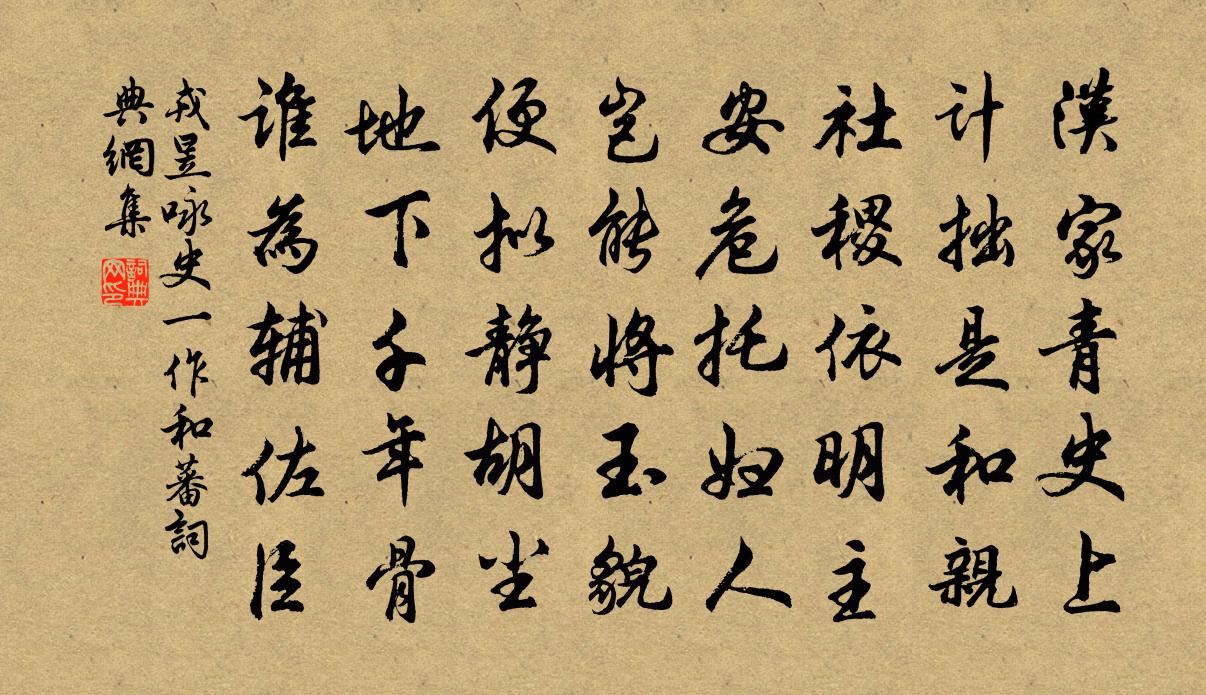 漢家青史上
计拙是和親
社稷依明主
安危托妇人
岂能將玉貌
便拟静胡尘
地下千年骨
谁為辅佐臣
戎昱咏史一作和蕃詞
典網集
詞典网印